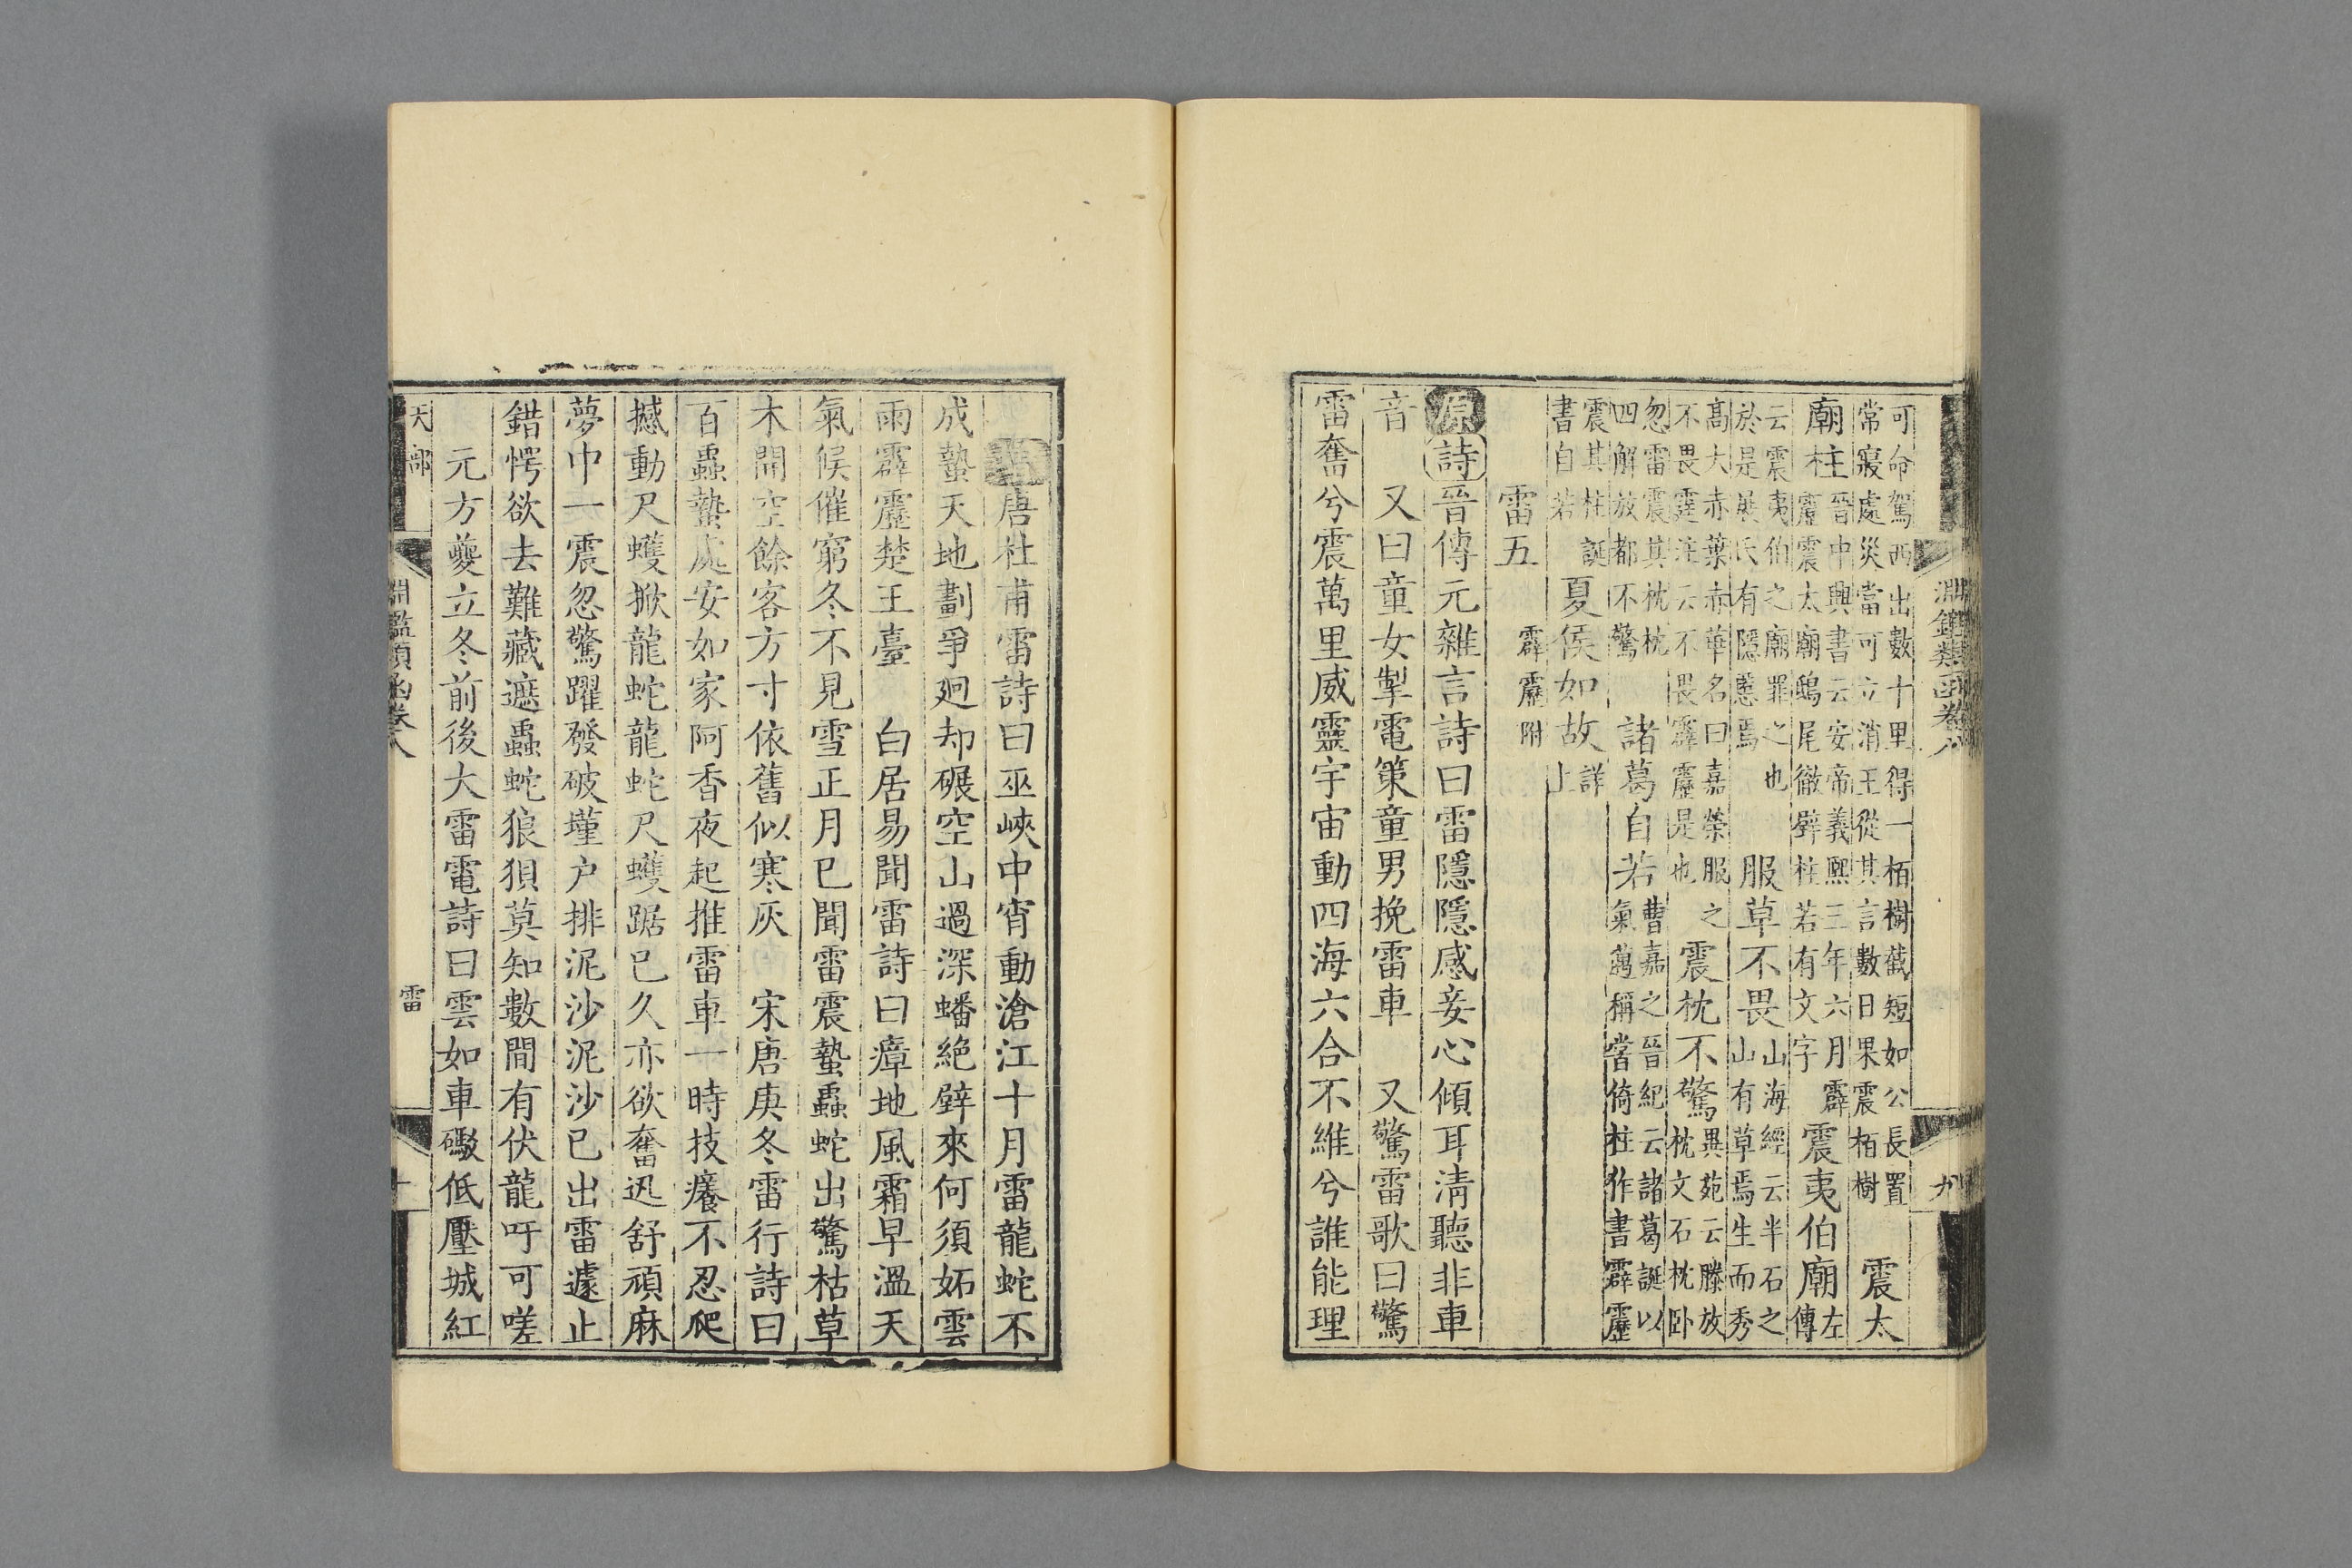 淵鑑類函卷八 九
可命駕西出數十里得一栢樹截短如公長置
常寢處災當可立消王從其言數日果震栢樹 震太
廟柱 晉中興書云安帝義熙三年六月霹
靂震太廟鴟尾徹壁柱若有文字 震夷伯廟 左
傳
云震夷伯之廟罪之也
於是展氏有隱慝焉 服草不畏 山海經云半石之
山有草焉生而秀
高大赤葉赤華名曰嘉榮服之
不畏霆注云不畏霹靂是也 震枕不驚 異苑云滕放
枕文石枕卧
忽雷震其枕枕
四解放都不驚 諸葛自若 曹嘉之晉紀云諸葛誕以
氣邁稱嘗倚柱作書霹靂
震其柱誕
書自若 夏侯如故 詳
上
雷五 霹靂附
原詩晉傅元雜言詩曰雷隱隱感妾心傾耳清聽非車
音 又曰童女掣電策童男挽雷車 又驚雷歌曰驚
雷奮兮震萬里威靈宇宙動四海六合不維兮誰能理
唐杜甫雷詩曰巫峽中宵動滄江十月雷龍蛇不
成蟄天地劃爭廻却碾空山過深蟠絶壁來何須妬雲
雨霹靂楚王臺 白居易聞雷詩曰瘴地風霜早溫天
氣候催窮冬不見雪正月已聞雷震蟄蟲蛇出驚枯草
木開空餘客方寸依舊似寒灰 宋唐庚冬雷行詩曰
百蟲蟄處安如家阿香夜起推雷車一時技癢不忍爬
撼動尺蠖掀龍蛇龍蛇尺蠖踞已久亦欲奮迅舒頑麻
夢中一震忽驚躍發破墐户排泥沙泥沙已出雷遽止
錯愕欲去難藏遮蟲蛇狼狽莫知數間有伏龍吁可嗟
元方夔立冬前後大雷電詩曰雲如車礮低壓城紅
天部 淵鑑類函卷八 雷 十